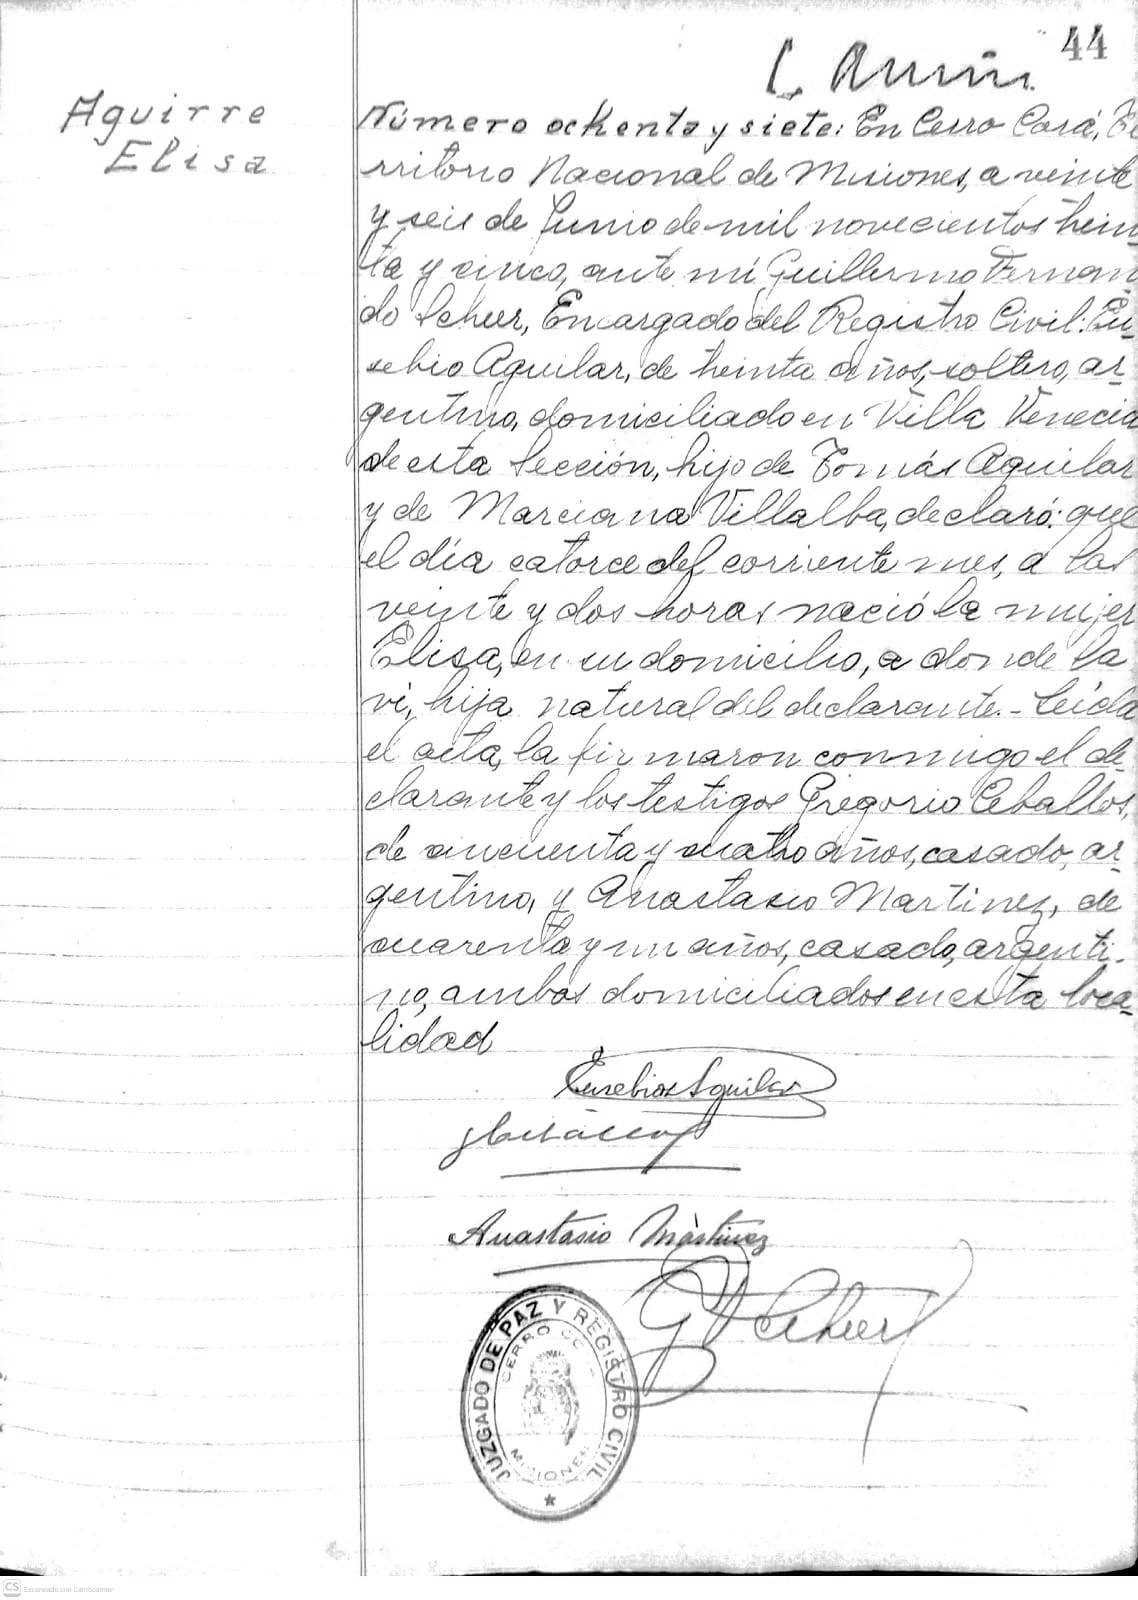 44
Aguirre
Elisa
Número ochenta y siete: En Cerro Corá, Te
rritorio Nacional de Misiones, a veinte
y seis de Junio de mil novecientos trein-
ta y cinco, ante mí Guillermo Fernan-
do Scheer, Encargado del Registro Civil: Eu-
sebio Aguilar, de treinta años, soltero, ar-
gentino, domiciliado en Villa Venecia
de esta Sección, hijo de Tomás Aguilar
y de Marciana Villalba, declaró: que
el día catorce del corriente mes, a las
veinte y dos horas nació la mujer
Elisa, en su domicilio, a donde la
vi, hija natural del declarante.- Leída
el acta, la firmaron conmigo el de-
clarante y los testigos Gregorio Ceballos,
de cincuenta y cuatro años, casado, ar-
gentino, y Anastasio Martinez, de
cuarenta y un años, casado, argenti-
no, ambos domiciliados en esta loca-
lidad
Eusebio Aguilar
Anastasio Martinez
G F Scheer
JUZGADO DE PAZ Y REGISTRO CIVIL
CERRO CORA
MISIONES
CS Escaneado con CamScanner